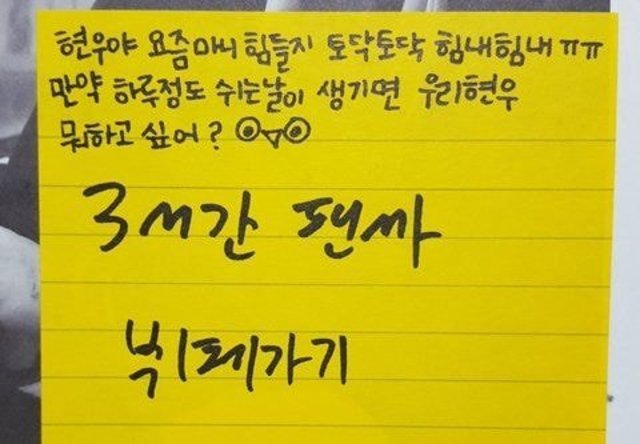 현우야 요즘 마니 힘들지 토닥토닥 힘내힘내 ㅠㅠ
만약 하루정도 쉬는날이 생기면 우리현우
뭐하고 싶어?
3시간 팬싸
뷔페가기